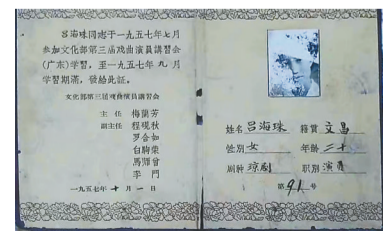 吕海珠同志于一九五七年七月
参加文化部第三届戏曲演員講習会
(广东)学習,至一九五七年九月
学習期滿,發給此証。
文化部第三届戏曲演員講習会
主任 梅蘭芳
副主任 程硯秋
罗合如
白駒榮
馬師曾
李門
一九五七年十月一日
姓名 吕海珠 籍貫 文昌
性别 女 年齡 二十
剧种 琼剧 职别 演員
第91号